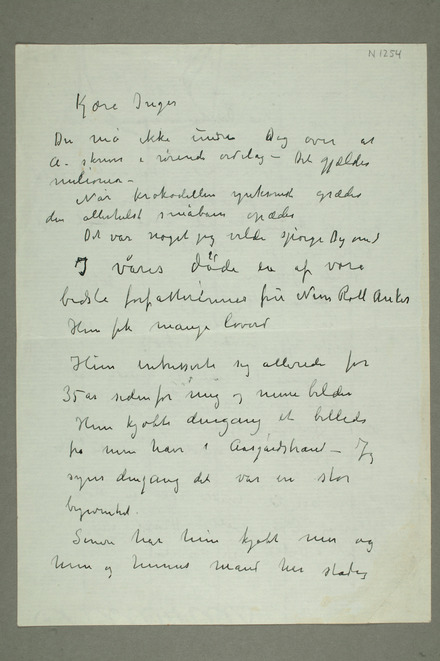 N 1254
Kjære Inger
Du må ikke undre Dig over at
A. skrives i rørende ordelag – Det gjælder
milioner –
Når krokodillen græder
den allerhelst småbarn
Det var noget jeg vilde spørge Dig om
I våres døde en af vore
bedste forfatterinner fru Nini Roll Anker
Hun fik mange lovord
Hun interesserte sig allerede for
35 år siden for mig og mine bilder
Hun kjøbte dengang et billede
fra min have i Aasgårdstrand – Jeg
synes dengang det var en stor
begivenhed.
Senere har hun kjøbt mer og
hun og hennes mand har stadig